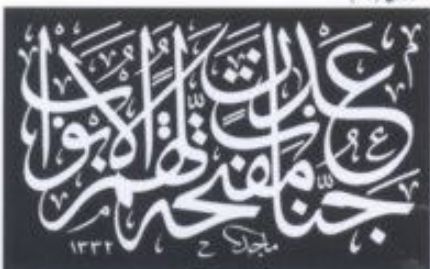 جَنَّاتِ عَدْنٍ مُفَتَّحَةً لَهُمُ الْأَبْوَابُ
ماجد
١٣٣٢